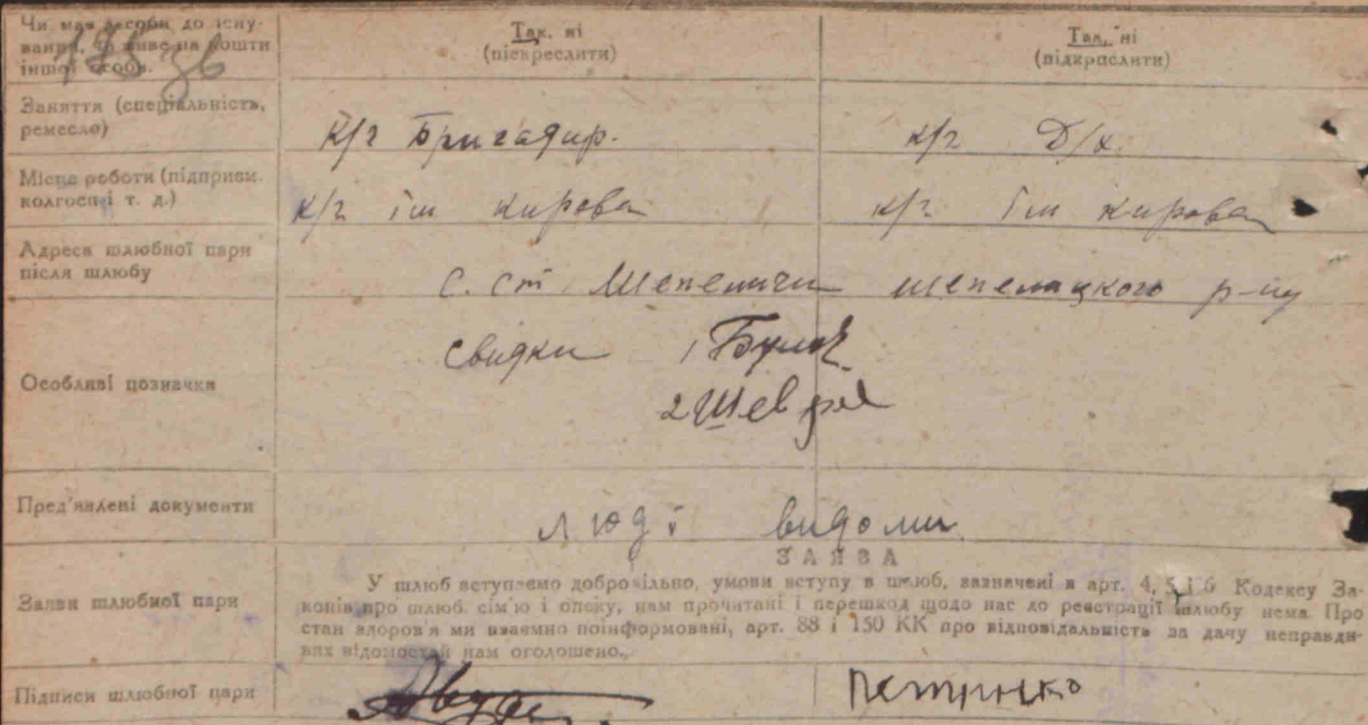 Чи має засоби до існу-
вання, чи живе на кошти
іншої особи.
Так, ні
(піскреслити)
Так, ні
(підкрпслити)
Заняття (спеціальність,
ремесло)
к/г Бригадир.
к/г Д/х.
Місце роботи (підприєм.
колгосп і т. д.)
к/г ім кирова
к/г ім кирова
Адреса шлюбної пари
після шлюбу
с. ст Шепеличи шепелицкого р-ну
Особливі позначки
свидки 1
2 Шев
Пред'явлені документи
люді видоми
Заяви шлюбної пари
ЗАЯВА
У шлюб вступаємо добровільно, умови вступу в шлюб, зазначені в арт. 4, 5 і 6 Кодексу За-
конів про шлюб. сім'ю і опеку, нам прочитані і перешкод щодо нас до реєстрації шлюбу нема. Про
стан здоров'я ми взаємно поінформовані, арт. 88 і 150 КК про відповідальність за дачу неправди-
вих відомостей нам оголошено.
Підписи шлюбної пари